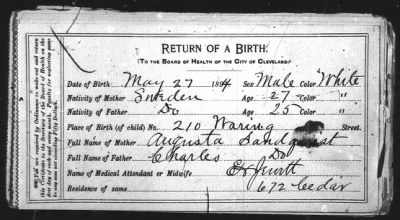 RETURN OF A BIRTH.
(TO THE BOARD OF HEALTH OF THE CITY OF CLEVELAND.)
Date of Birth May 27 1894 Sex Male Color White
Nativity of Mother Sweden Age 27 Color "
Nativity of Father Do Age 25 Color "
Place of Birth (of child) No. 210 Waring Street.
Full Name of Mother Augusta Sandquist
Full Name of Father Charles Do
Name of Medical Attendant or Midwife
Residence of same 672 Cedar